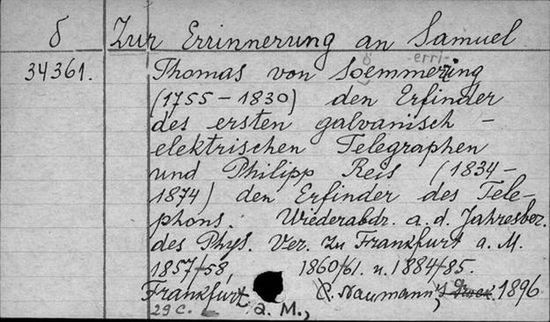 δ Zur Errinnerung an Samuel
34361. Thomas von Soemmering
ö -erri-
(1755-1830) den Erfinder
des ersten galvanisch-
elektrischen Telegraphen
und Philipp Reis (1834-
1874) den Erfinder des Tele-
phons. Wiederabdr. a. d. Jahresber.
des Phys. Ver. zu Frankfurt a. M.
1857/58, 1860/61. u. 1884/85.
Frankfurt a. M., C. Naumann's Druck. 1896
29 C.